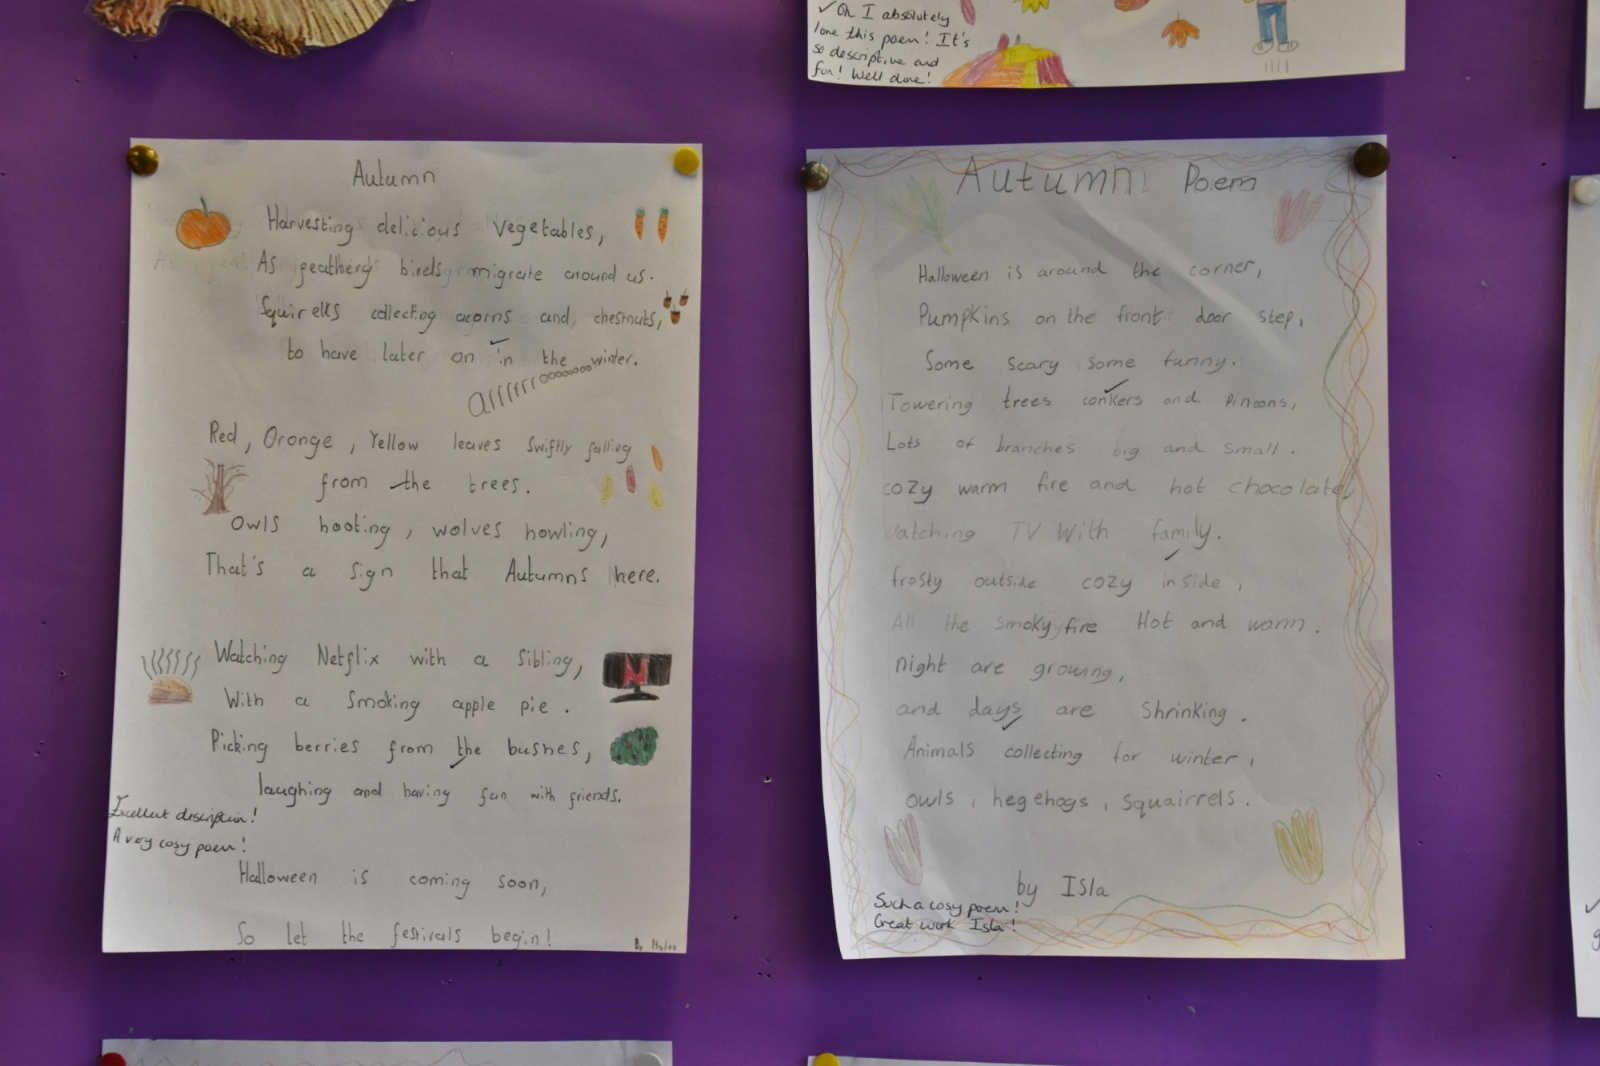 ✓Oh I absolutely
love this poem! It's
so descriptive and
fun! Well done!
Autumn
Harvesting delicious vegetables,
As feathery birds migrate around us.
Squirells collecting acorns and chestnuts,
to have later on in the winter.
arrrrrrooooooooo
Red, Orange, Yellow leaves swiftly falling
from the trees.
Owls hooting, wolves howling,
That's a sign that Autumns here.
Watching Netflix with a sibling,
With a smoking apple pie.
Picking berries from the bushes,
laughing and having fun with friends.
Excellent description!
A very cosy poem!
Halloween is coming soon,
So let the festivals begin!
By
N
Autumn Poem
Halloween is around the corner,
Pumpkins on the front door step,
Some scary some funny.
Towering trees conkers and
Lots of branches big and small.
cozy warm fire and hot chocolate,
watching TV With family.
frosty outside cozy inside,
All the smoky fire Hot and warm.
night are growing,
and days are Shrinking.
Animals collecting for winter,
owls, hegehogs, squairrels.
by Isla
Such a cosy poem!
Great work Isla!